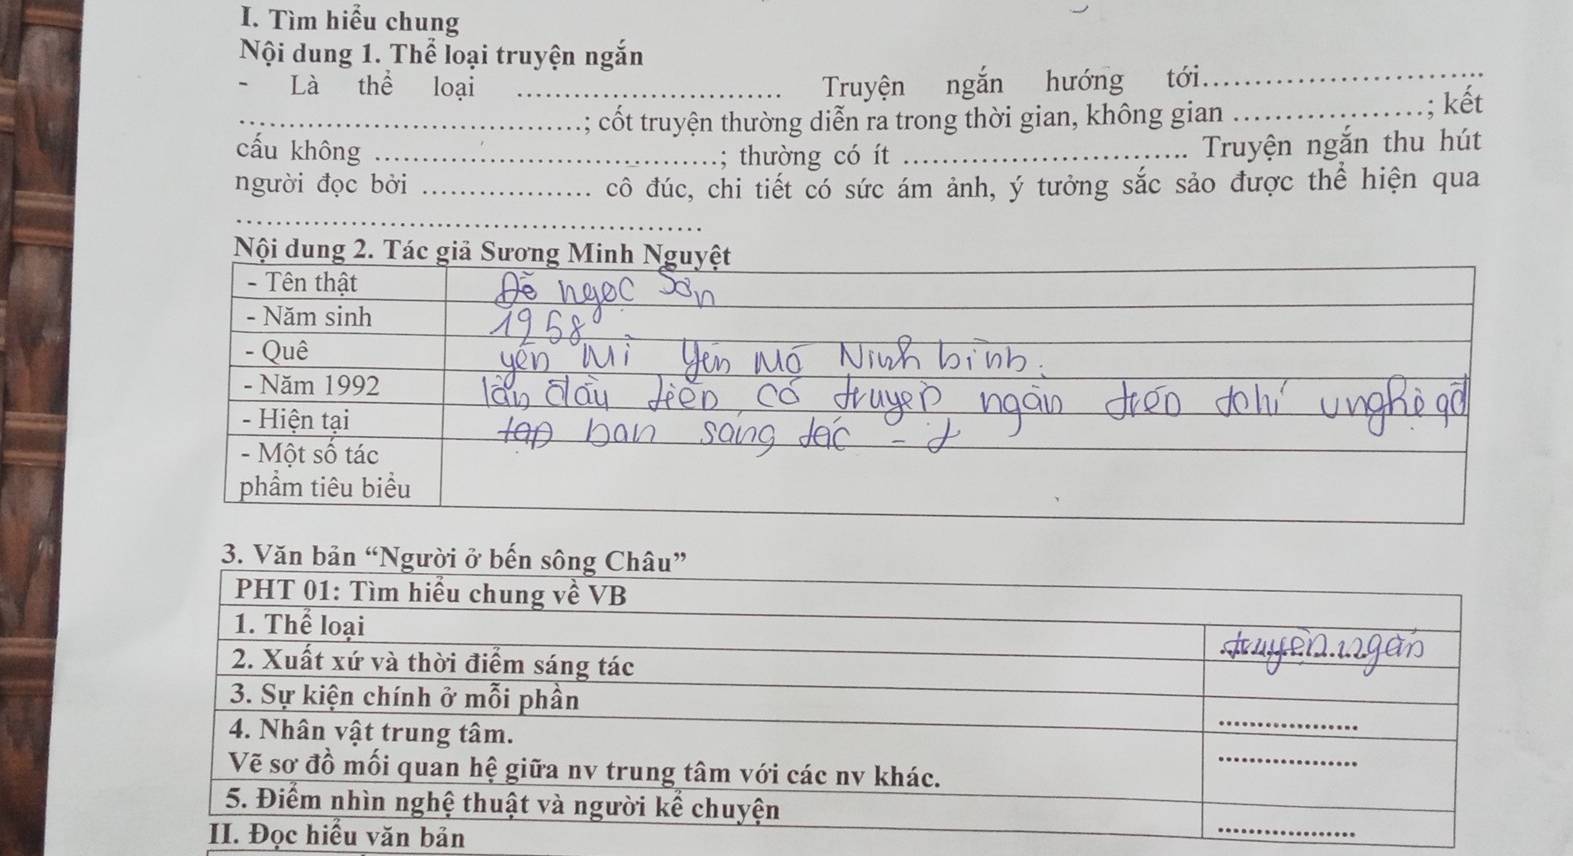 I. Tìm hiểu chung
Nội dung 1. Thể loại truyện ngắn
- Là thể loại .............................. Truyện ngắn hướng tới..............................
..............................; cốt truyện thường diễn ra trong thời gian, không gian ....................; kết
cấu không ..............................; thường có ít .............................. Truyện ngắn thu hút
người đọc bởi .................. cô đúc, chi tiết có sức ám ảnh, ý tưởng sắc sảo được thể hiện qua
................................................
Nội dung 2. Tác giả Sương Minh Nguyệt
- Tên thật Đỗ ngọc Sơn
- Năm sinh 1958
- Quê yên Mĩ Yên Mô Ninh bình.
- Năm 1992 lần đầu tiên có truyện ngắn trên
- Hiện tại ban sáng tác -
- Một số tác
phẩm tiêu biểu
3. Văn bản “Người ở bến sông Châu”
PHT 01: Tìm hiểu chung về VB
1. Thể loại truyện ngắn
2. Xuất xứ và thời điểm sáng tác
3. Sự kiện chính ở mỗi phần ..................
4. Nhân vật trung tâm. ..................
Vẽ sơ đồ mối quan hệ giữa nv trung tâm với các nv khác.
5. Điểm nhìn nghệ thuật và người kể chuyện ..................
II. Đọc hiểu văn bản